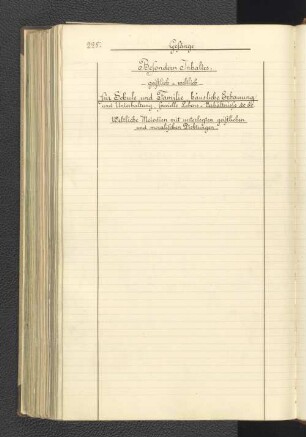 225.
Gesänge
Besondern Inhaltes.
geistlich u. weltlich
für Schule und Familie, häusliche Erbauung
und Unterhaltung, socielle Leben u. Verhältnisse &c &c
Weltliche Melodien mit unterlegten geistlichen
und moralischen Dichtungen.